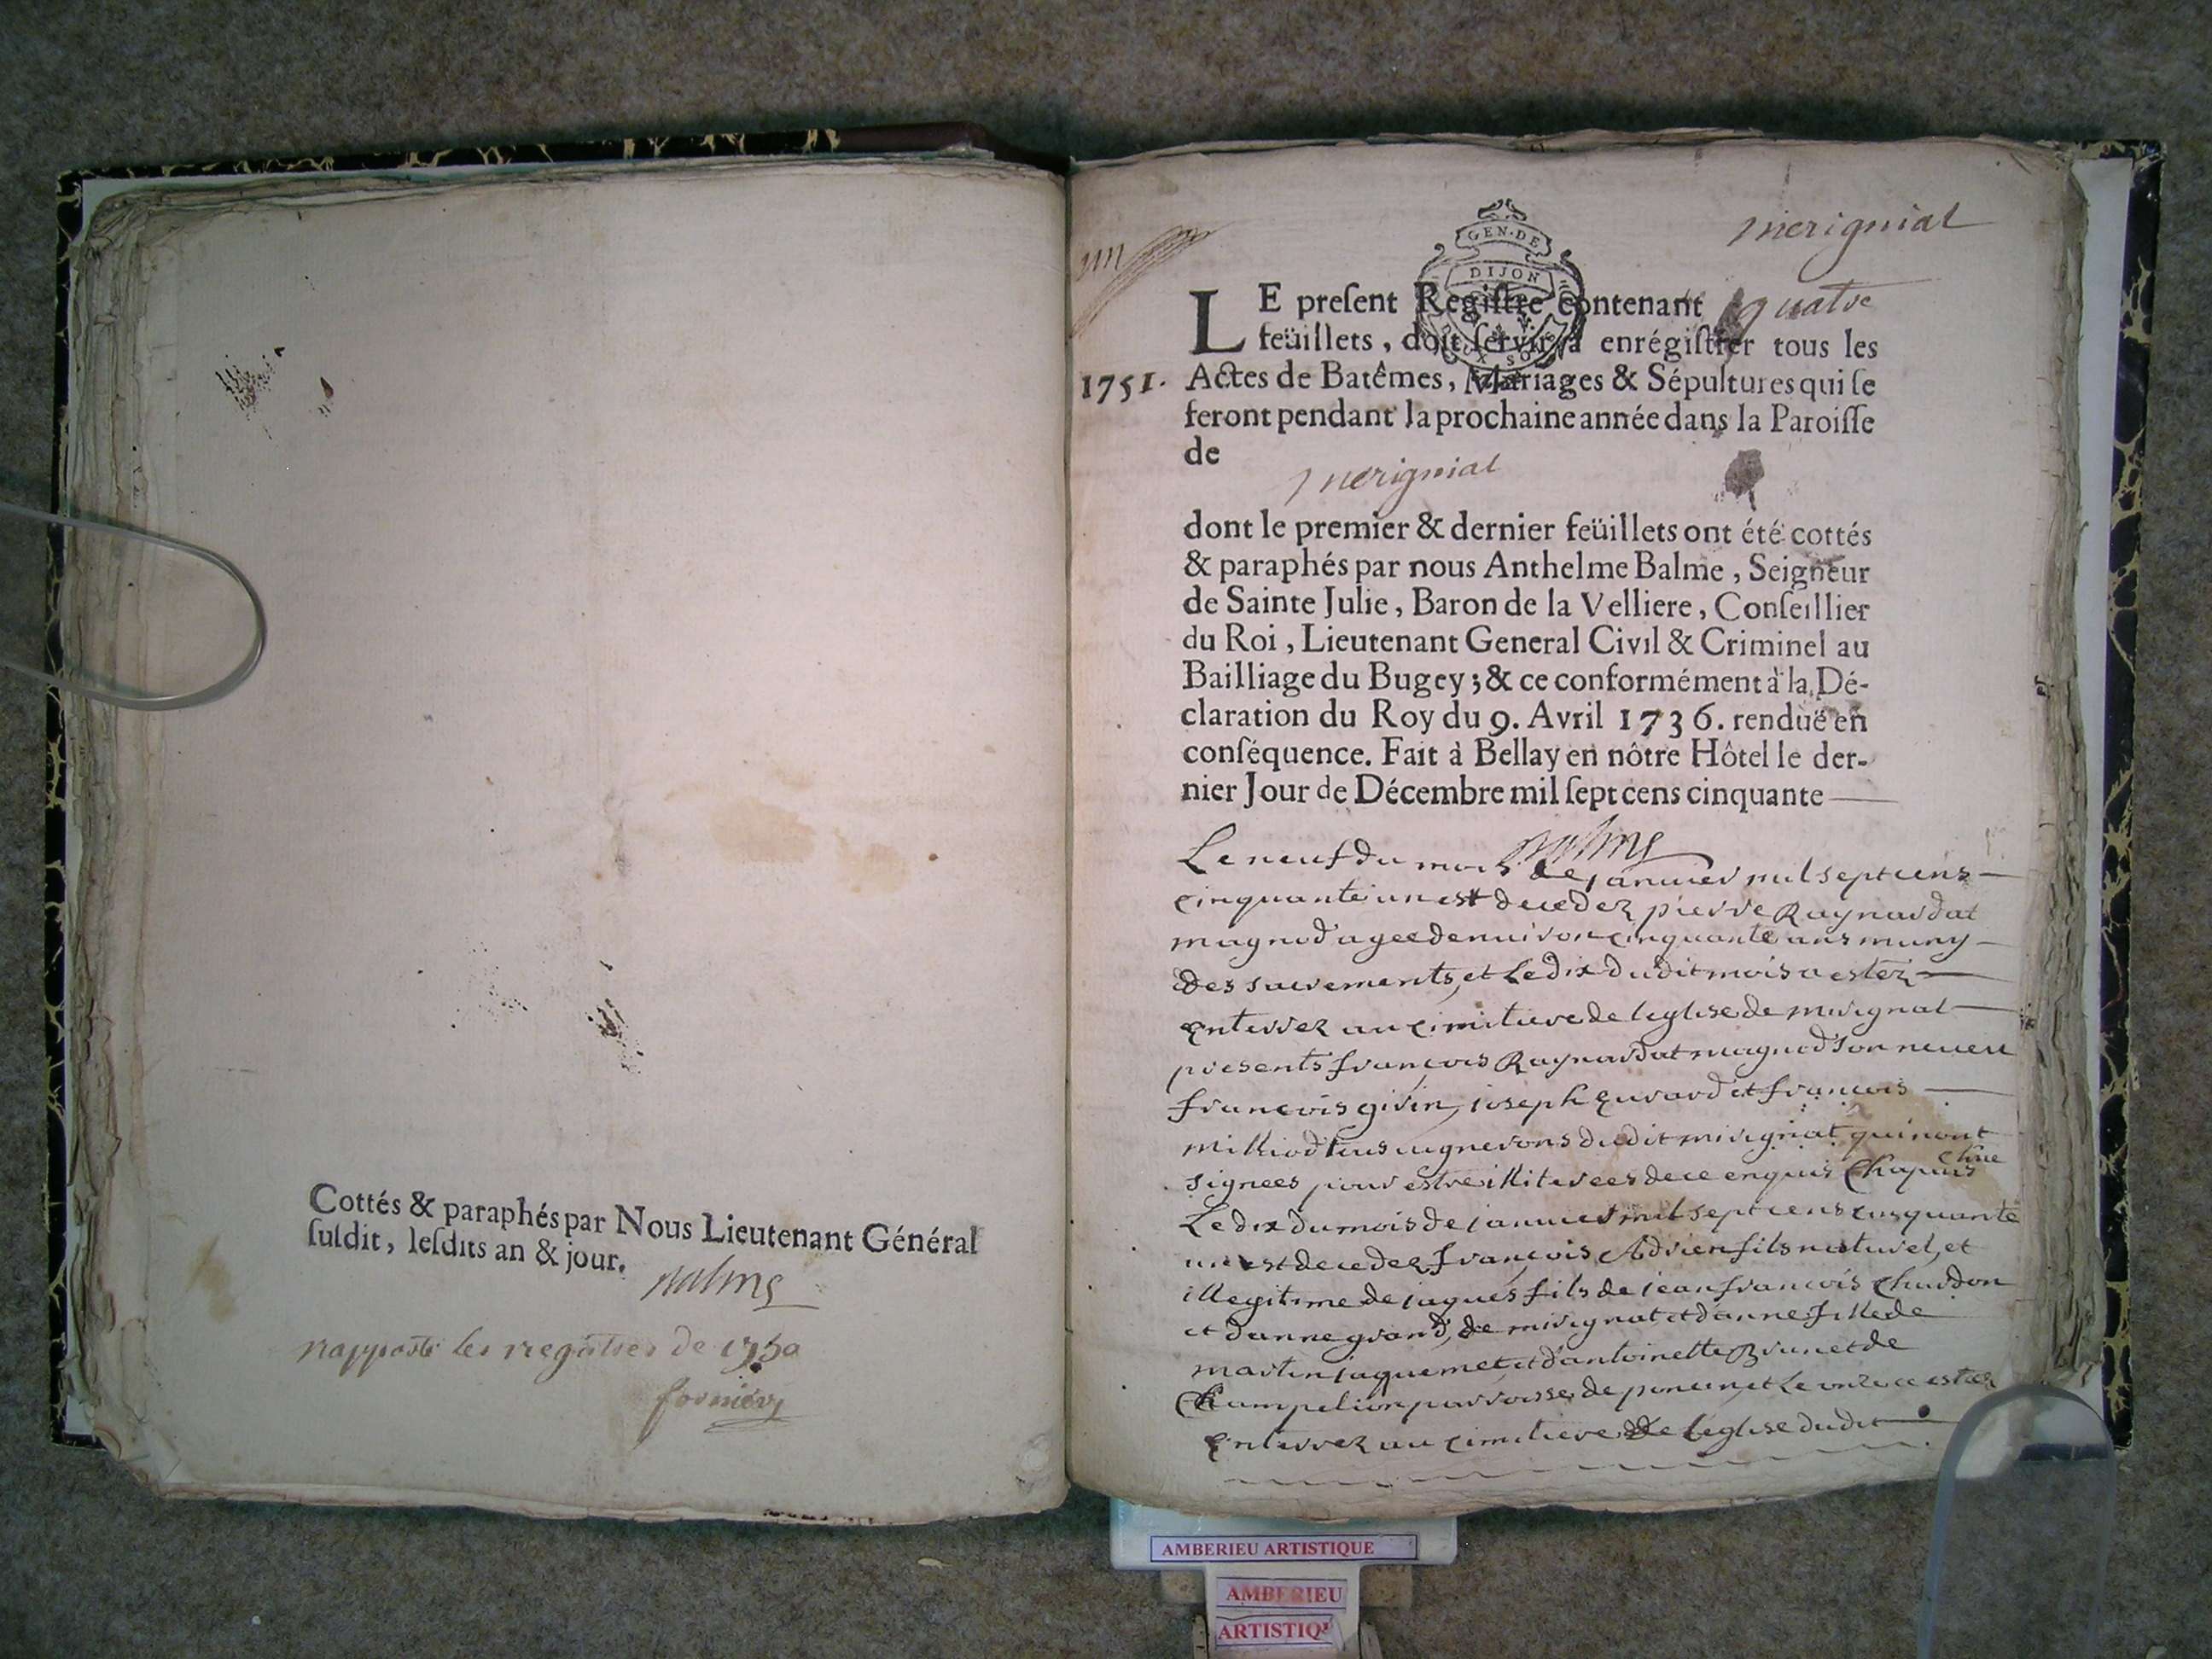 Cottés & paraphés par Nous Lieutenant Général
ſuſdit, leſdits an & jour.
Balme
rapporté les registres de 1750
fornier
merignial
GEN·DE
DIJON
LE preſent Regiſtre contenant quatre
feüillets, doit ſervir à enrégiſtrer tous les
1751. Actes de Batêmes, Mariages & Sépultures qui ſe
feront pendant la prochaine année dans la Paroiſſe
de
merignial
dont le premier & dernier feüillets ont été cottés
& paraphés par nous Anthelme Balme, Seigneur
de Sainte Julie, Baron de la Velliere, Conſeillier
du Roi, Lieutenant General Civil & Criminel au
Bailliage du Bugey; & ce conformément à la Dé-
claration du Roy du 9. Avril 1736. renduë en
conſéquence. Fait à Bellay en nôtre Hôtel le der-
nier Jour de Décembre mil ſept cens cinquante
Balme
Le neuf du mois de januier mil sept cens
cinquante un est decedez pierre Raynard dat
magnod agee denuiron cinquante ans muny
des sacrements, et Le dix dudit mois a estez
Enterrez au cimitiere de leglise de mirignat
presents francois Raynard dat magnod son neueu
francois girin, ioseph Eurard et francois
milliod tous uignerons dudit mirignat qui nont
signees pour estre illiterees de ce enquis Chapuis
Le dix du mois de januier mil sept cens cinquante
un est decedez francois Adrien fils naturel, et
illegitime de iaques fils de jean francois Chardon
et danne grand, de mirignat et danne fille de
martin iaquemet et dantoinette Brunet de
Champelion parroisse de poncin et Le onze a estez
Enterrez au cimitiere de leglise dudit
AMBERIEU ARTISTIQUE
AMBERIEU
ARTISTIQ